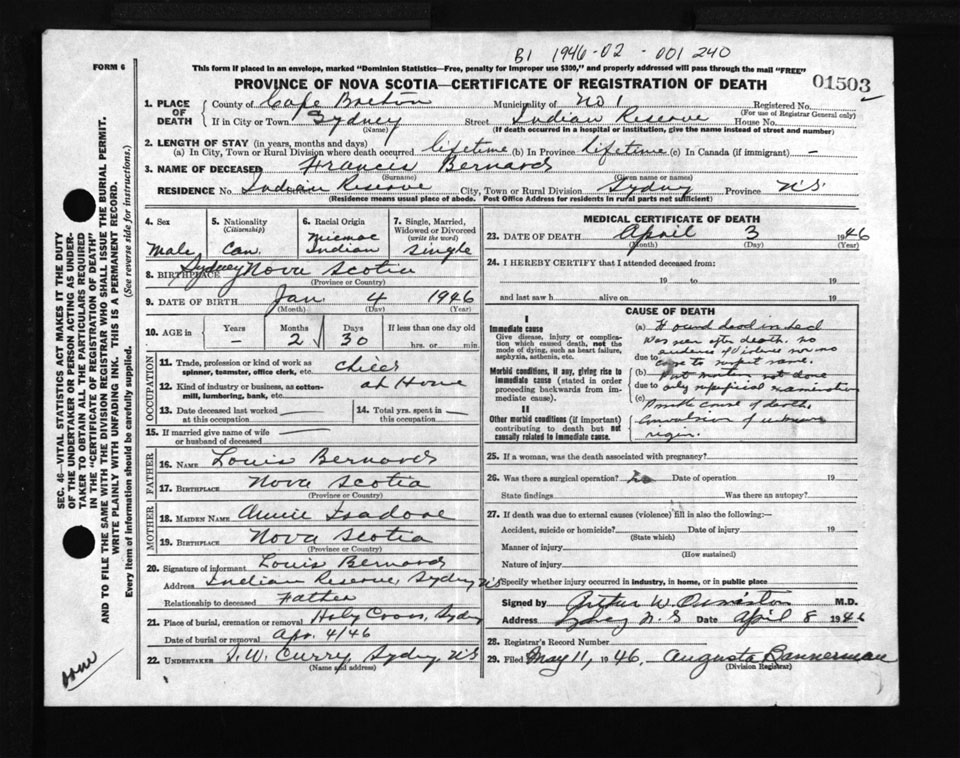 B1 1946-02-001240
FORM 6
This form if placed in an envelope, marked "Dominion Statistics—Free, penalty for improper use $300," and properly addressed will pass through the mail "FREE"
PROVINCE OF NOVA SCOTIA—CERTIFICATE OF REGISTRATION OF DEATH
01503
1. PLACE OF DEATH { County of Cape Breton Municipality of No 1 Registered No.
(For use of Registrar General only)
If in City or Town Sydney Street Indian Reserve House No.
(Name) (If death occurred in a hospital or institution, give the name instead of street and number)
2. LENGTH OF STAY (in years, months and days)
(a) In City, Town or Rural Division where death occurred lifetime (b) In Province Lifetime (c) In Canada (if immigrant) —
3. NAME OF DECEASED Francis Bernard
(Surname) (Given name or names)
RESIDENCE No. Indian Reserve Street City, Town or Rural Division Sydney Province N.S.
(Residence means usual place of abode. Post Office Address for residents in rural parts not sufficient)
4. Sex Male
5. Nationality (Citizenship) Can.
6. Racial Origin Micmac Indian
7. Single, Married, Widowed or Divorced (write the word) Single
8. BIRTHPLACE Sydney Nova Scotia
(Province or Country)
9. DATE OF BIRTH Jan 4 1946
(Month) (Day) (Year)
10. AGE in { Years — Months 2 Days 30 If less than one day old hrs. or min.
OCCUPATION
11. Trade, profession or kind of work as spinner, teamster, office clerk, etc. Child
12. Kind of industry or business, as cotton-mill, lumbering, bank, etc. at Home
13. Date deceased last worked at this occupation —
14. Total yrs. spent in this occupation —
15. If married give name of wife or husband of deceased —
FATHER
16. NAME Louis Bernard
17. BIRTHPLACE Nova Scotia
(Province or Country)
MOTHER
18. MAIDEN NAME Annie Isadore
19. BIRTHPLACE Nova Scotia
(Province or Country)
20. Signature of informant Louis Bernard
Address Indian Reserve, Sydney N.S.
Relationship to deceased Father
21. Place of burial, cremation or removal Holy Cross, Sydney
Date of burial or removal Apr. 4/46
22. UNDERTAKER S. W. Curry Sydney, N.S.
(Name and address)
MEDICAL CERTIFICATE OF DEATH
23. DATE OF DEATH April 3 1946
(Month) (Day) (Year)
24. I HEREBY CERTIFY that I attended deceased from:
19 to 19
and last saw h alive on 19
CAUSE OF DEATH
I
Immediate cause
Give disease, injury or complication which caused death, not the mode of dying, such as heart failure, asphyxia, asthenia, etc.
Morbid conditions, if any, giving rise to immediate cause (stated in order proceeding backwards from immediate cause).
II
Other morbid conditions (if important) contributing to death but not causally related to immediate cause.
(a) Found dead in bed
Was seen after death. No
due to evidence of violence nor was cause to suspect same.
(b) Post mortem not done
due to only superficial examination
(c) Possible cause of death,
Convulsion of unknown
origin.
25. If a woman, was the death associated with pregnancy?
26. Was there a surgical operation? No Date of operation 19
State findings Was there an autopsy?
27. If death was due to external causes (violence) fill in also the following:—
Accident, suicide or homicide? Date of injury 19
(State which)
Manner of injury
(How sustained)
Nature of injury
Specify whether injury occurred in industry, in home, or in public place
Signed by Arthur W. Ormiston M.D.
Address Sydney N.S. Date April 8 1946
28. Registrar's Record Number
29. Filed May 11, 1946. Augusta Bannerman
(Division Registrar)
SEC. 46—VITAL STATISTICS ACT MAKES IT THE DUTY
OF THE UNDERTAKER OR PERSON ACTING AS UNDERTAKER TO OBTAIN ALL THE PARTICULARS REQUIRED
IN THE "CERTIFICATE OF REGISTRATION OF DEATH"
AND TO FILE THE SAME WITH THE DIVISION REGISTRAR WHO SHALL ISSUE THE BURIAL PERMIT.
WRITE PLAINLY WITH UNFADING INK. THIS IS A PERMANENT RECORD.
Every item of information should be carefully supplied. (See reverse side for instructions.)